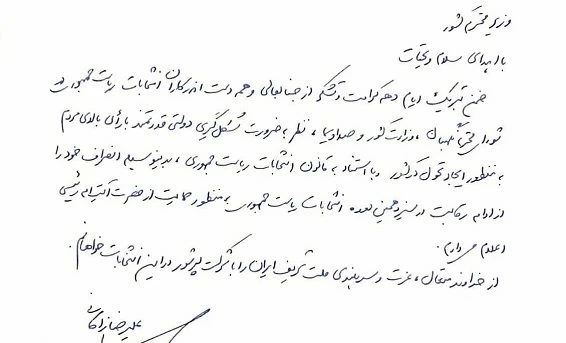 وزیر محترم کشور
با اهدای سلام و تحیات
ضمن تبریک ایام دهه کرامت و تشکر از جنابعالی و همه دست اندرکاران انتخابات ریاست جمهوری در
شورای محترم نگهبان، وزارت کشور و صداوسیما، نظر به ضرورت شکل گیری دولتی قدرتمند با رأی بالای مردم
به منظور ایجاد تحول در کشور و با استناد به قانون انتخابات ریاست جمهوری، بدینوسیله انصراف خود را
از ادامه رقابت در سیزدهمین دوره انتخابات ریاست جمهوری به منظور حمایت از حضرت آیت اله رئیسی
اعلام می دارم.
از خداوند متعال، عزت و سربلندی ملت شریف ایران را با شرکت پرشور در این انتخابات خواهانم.
علیرضا زاکانی